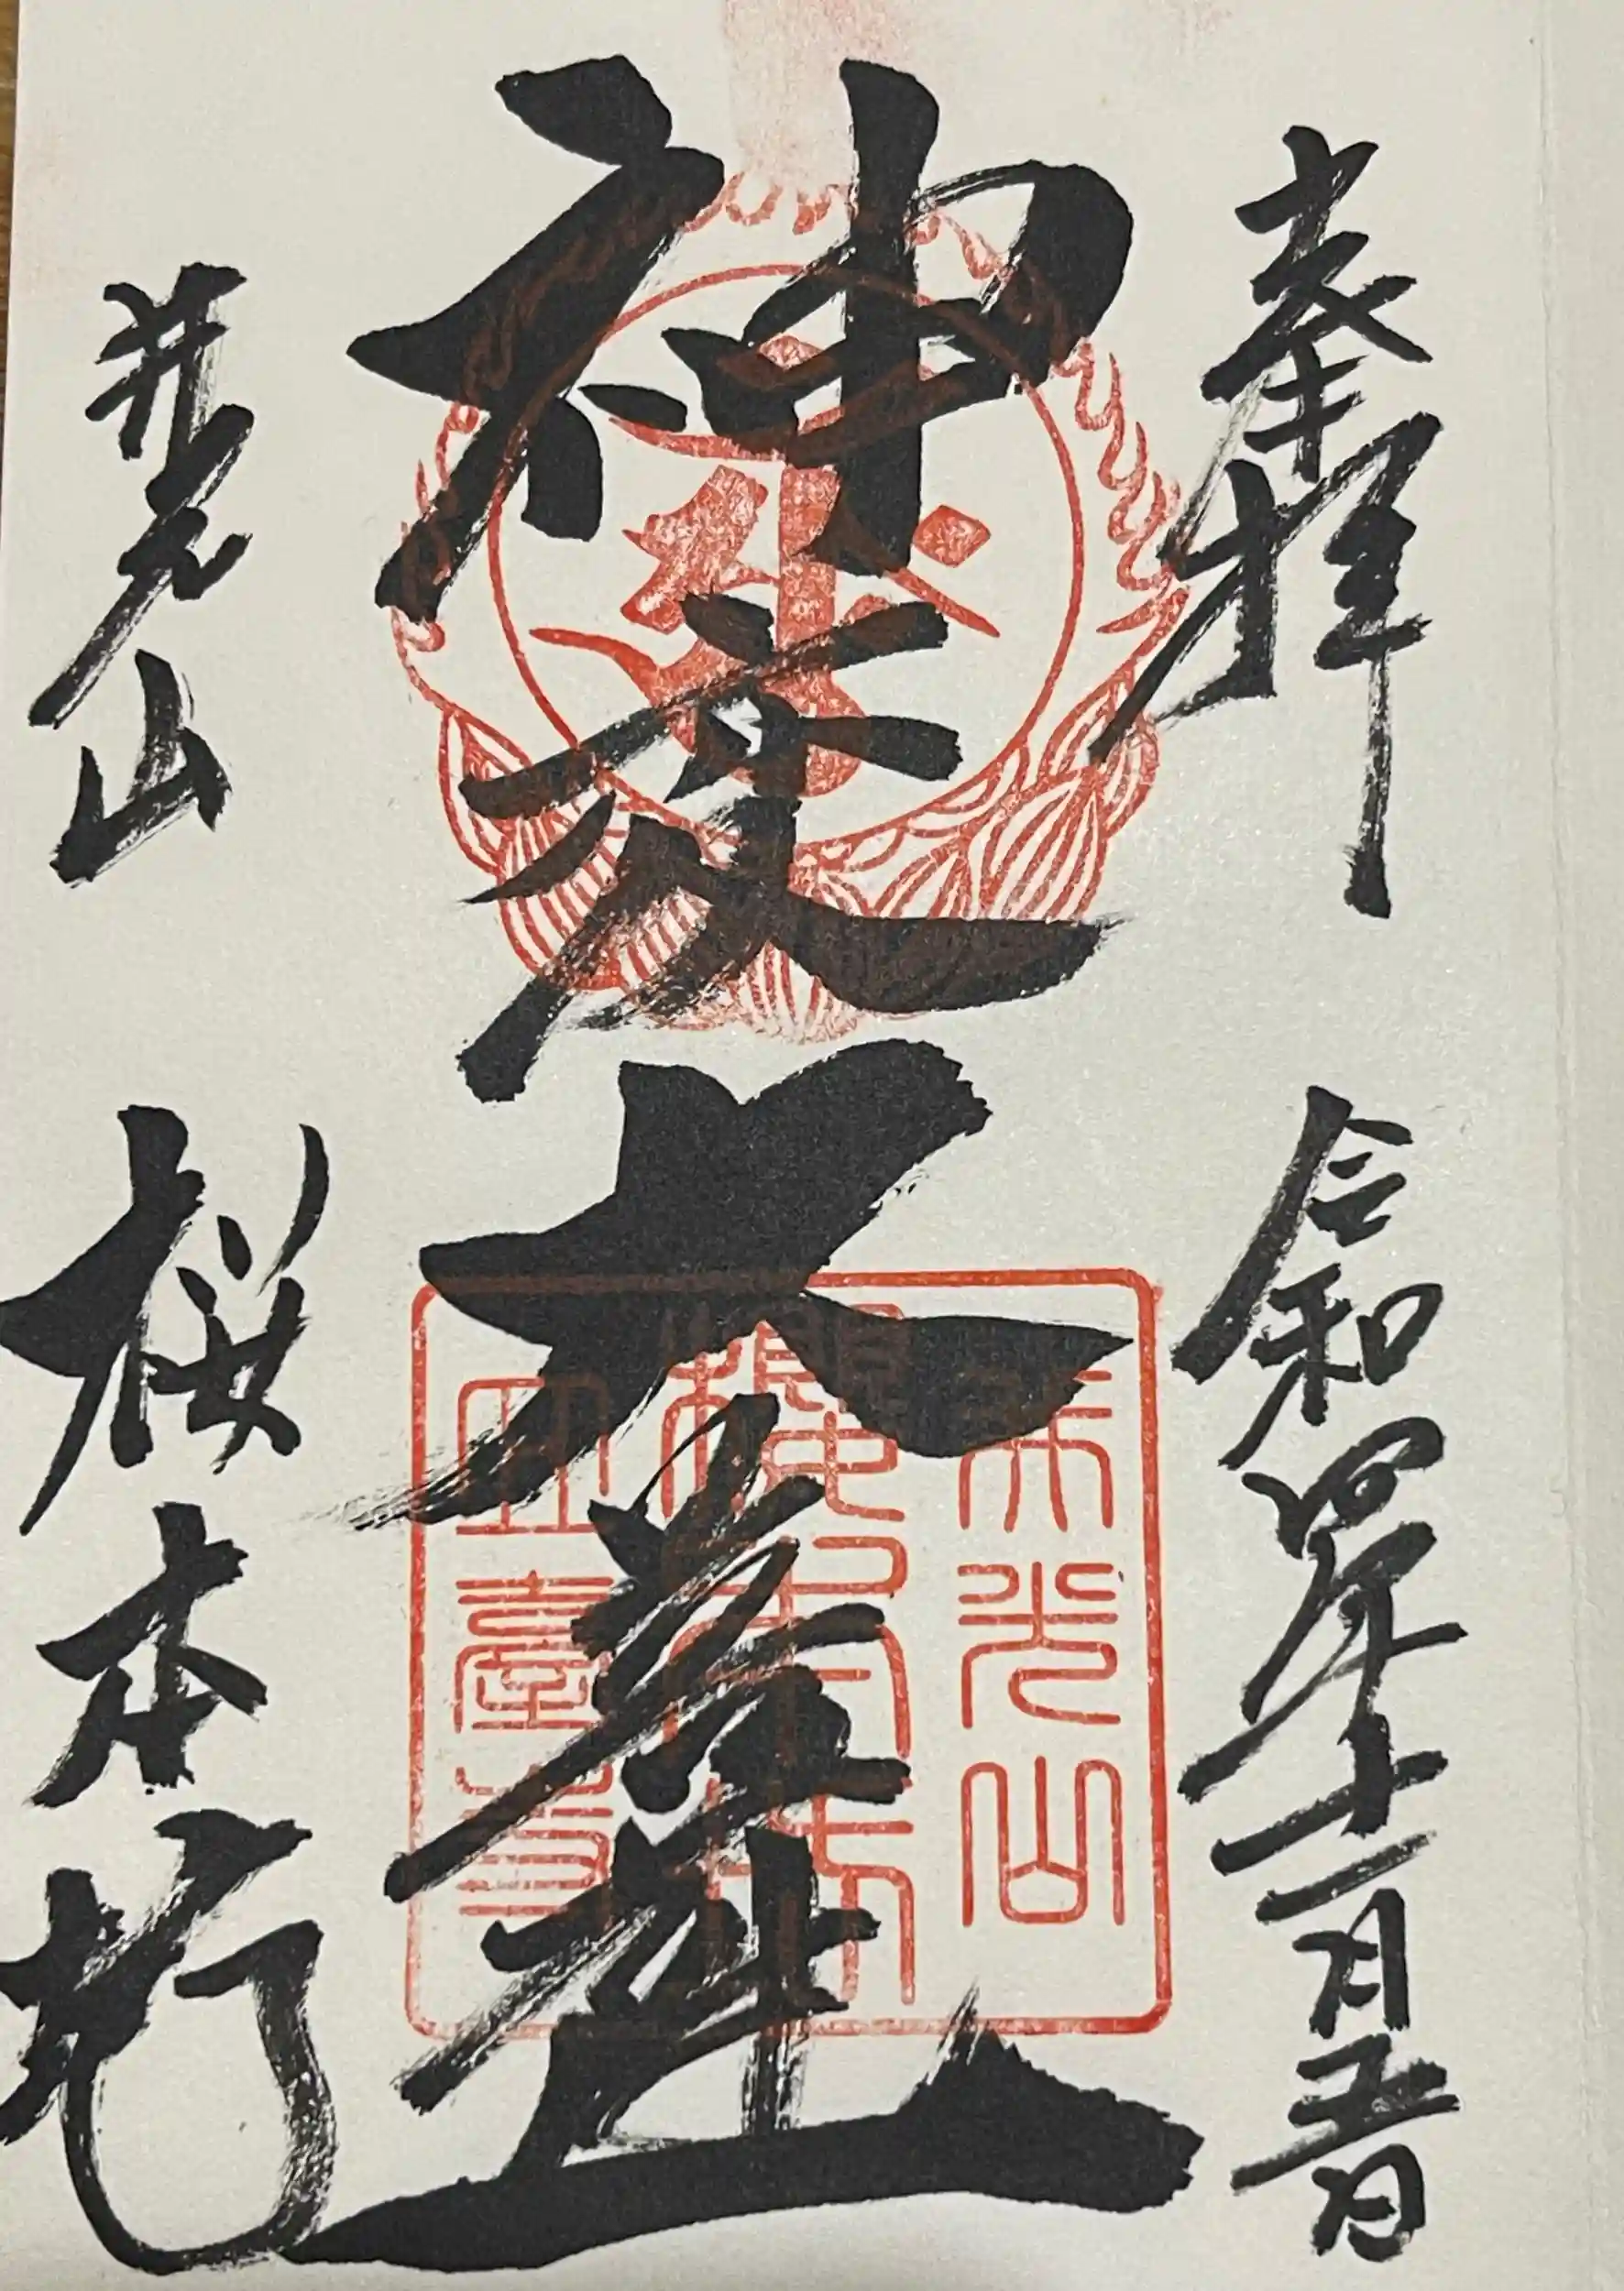 奉拝 令和四年十二月五日
神変大菩薩
井光山 桜本坊
井光山
櫻本坊